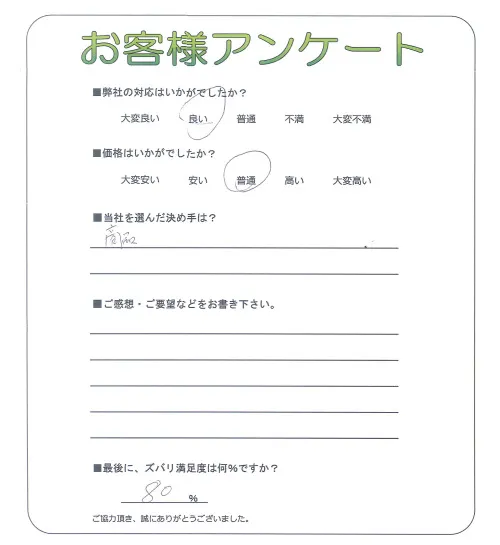 お客様アンケート
■弊社の対応はいかがでしたか？
大変良い 良い 普通 不満 大変不満
■価格はいかがでしたか？
大変安い 安い 普通 高い 大変高い
■当社を選んだ決め手は？
商品
■ご感想・ご要望などをお書き下さい。
■最後に、ズバリ満足度は何%ですか？
80 %
ご協力頂き、誠にありがとうございました。